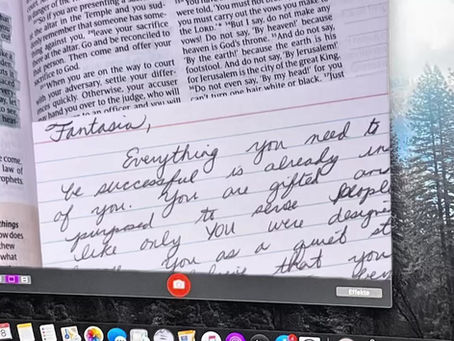 if you are presenting a
the altar in the Temple and you sud-
remember that someone has some-
against you, leave your sacrifice
at the altar. Go and be reconciled to
person. Then come and offer your
to God.
When you are on the
your adversary, settle your differ-
quickly. Otherwise, your accuser
hand you over to the judge, who will
to an officer, and you will
were told, 'You must not
you must carry out the vows you make to
the LORD.' But I say, do not make any
vows! Do not say, 'By heaven!' because
heaven is God's throne. And do not say,
'By the earth!' because the earth is his
footstool. And do not say, 'By Jerusalem!'
for Jerusalem is the city of the great King.
Do not even say, 'By my head!' for you
can't turn one hair white or black. Just
come,
law of
prophets.
things
how does
what
Fantasia,
Everything you need to
be successful is already in
of you. You are gifted and
purposed to sense people
like only YOU were
you as a quiet
that you
Effekte